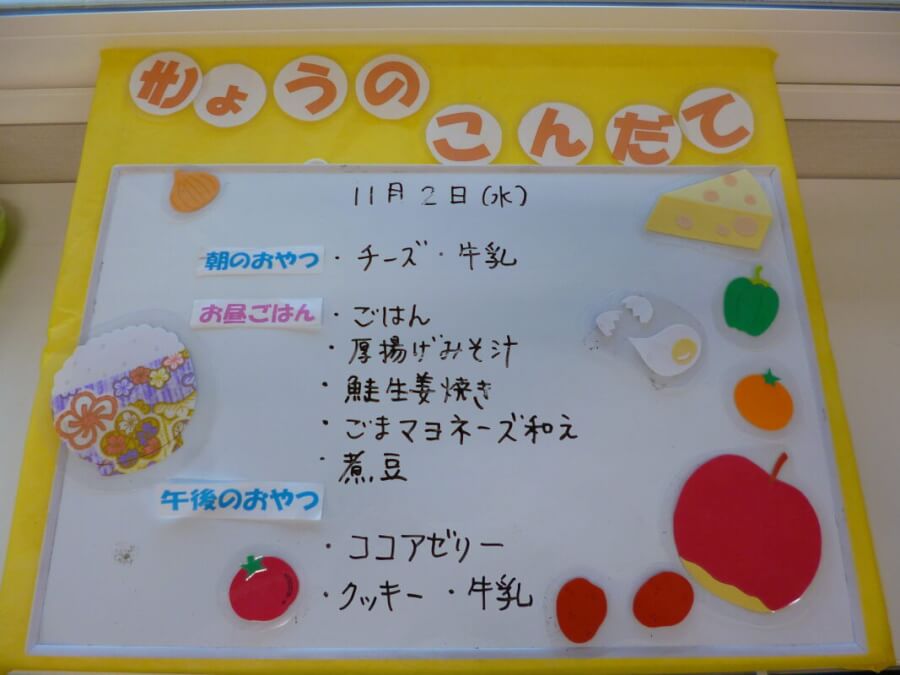 きょうの
こんだて
11月2日(水)
朝のおやつ ・チーズ ・牛乳
お昼ごはん ・ごはん
・厚揚げみそ汁
・鮭生姜焼き
・ごまマヨネーズ和え
・煮豆
午後のおやつ
・ココアゼリー
・クッキー ・牛乳